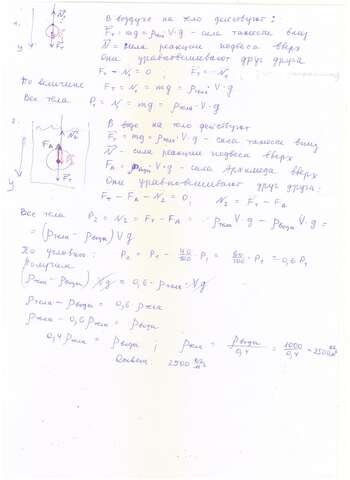 1.
N₁
Fт
y
В воздухе на тело действуют:
Fт = mg = ρтел · V · g - сила тяжести вниз
N - сила реакции подвеса вверх
Они уравновешивают друг друга
Fт - N₁ = 0 ; Fт = N₁
По величине Fт = N₁ = mg = ρтел · V · g
Вес тела P₁ = N₁ = mg = ρтела · V · g
2.
N₂
FА
Fт
y
В воде на тело действуют
Fт = mg = ρтел · V · g - сила тяжести вниз
N - сила реакции подвеса вверх
FА = ρводы · V · g - сила Архимеда вверх
Они уравновешивают друг друга:
Fт - FА - N₂ = 0; N₂ = Fт - FА
Вес тела P₂ = N₂ = Fт - FА = ρтела V · g - ρводы V · g =
= (ρтела - ρводы) V g
По условию: P₂ = P₁ - 40/100 · P₁ = 60/100 · P₁ = 0,6 P₁
Получим
(ρтела - ρводы) Vg = 0,6 · ρтела · Vg
ρтела - ρводы = 0,6 ρтела
ρтела - 0,6 ρтела = ρводы
0,4 ρтела = ρводы ; ρтела = ρводы/0,4 = 1000/0,4 = 2500 кг/м³
Ответ: 2500 кг/м³